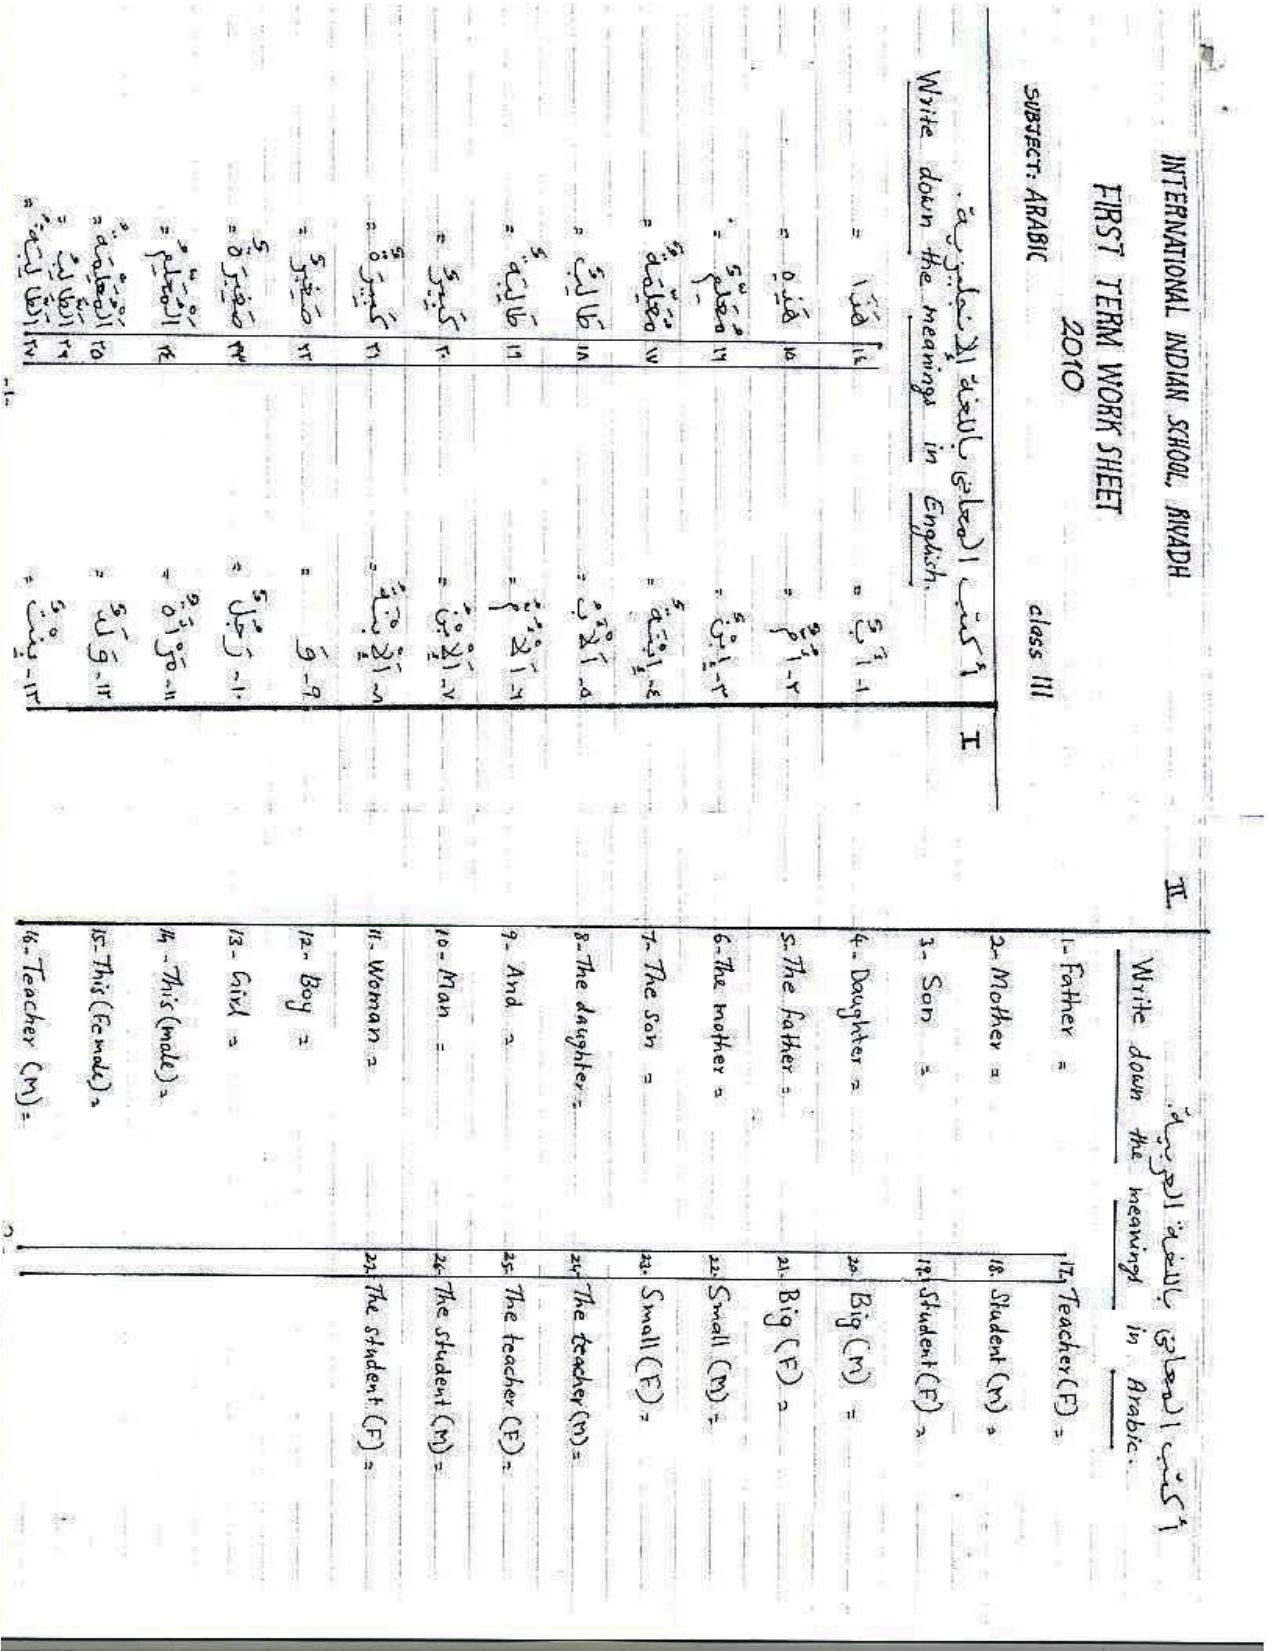 INTERNATIONAL INDIAN SCHOOL, RIYADH
FIRST TERM WORK SHEET
2010
SUBJECT: ARABIC class III
أكتب المعاني باللغة الإنجليزية. I
Write down the meanings in English.
١- أَبٌ =
٢- أُمٌّ =
٣- إِبْنٌ =
٤- إِبْنَةٌ =
٥- اَلْأَبُ =
٦- اَلْأُمُّ =
٧- اَلْإِبْنُ =
٨- اَلْإِبْنَةُ =
٩- وَ =
١٠- رَجُلٌ =
١١- مَرْأَةٌ =
١٢- وَلَدٌ =
١٣- بِنْتٌ =
١٤ هَذَا =
١٥ هَذِهِ =
١٦ مُعَلِّمٌ =
١٧ مُعَلِّمَةٌ =
١٨ طَالِبٌ =
١٩ طَالِبَةٌ =
٢٠ كَبِيرٌ =
٢١ كَبِيرَةٌ =
٢٢ صَغِيرٌ =
٢٣ صَغِيرَةٌ =
٢٤ اَلْمُعَلِّمُ =
٢٥ اَلْمُعَلِّمَةُ =
٢٦ اَلطَّالِبُ =
٢٧ اَلطَّالِبَةُ =
-1-
II أكتب المعاني باللغة العربية.
Write down the meanings in Arabic.
1- Father =
2- Mother =
3- Son =
4- Daughter =
5- The father =
6- The mother =
7- The son =
8- The daughter =
9- And =
10- Man =
11- Woman =
12- Boy =
13- Girl =
14- This (male) =
15- This (Female) =
16- Teacher (M) =
17. Teacher (F) =
18. Student (m) =
19. Student (F) =
20. Big (M) =
21. Big (F) =
22. Small (M) =
23. Small (F) =
24. The teacher (M) =
25. The teacher (F) =
26. The student (M) =
27. The student (F) =